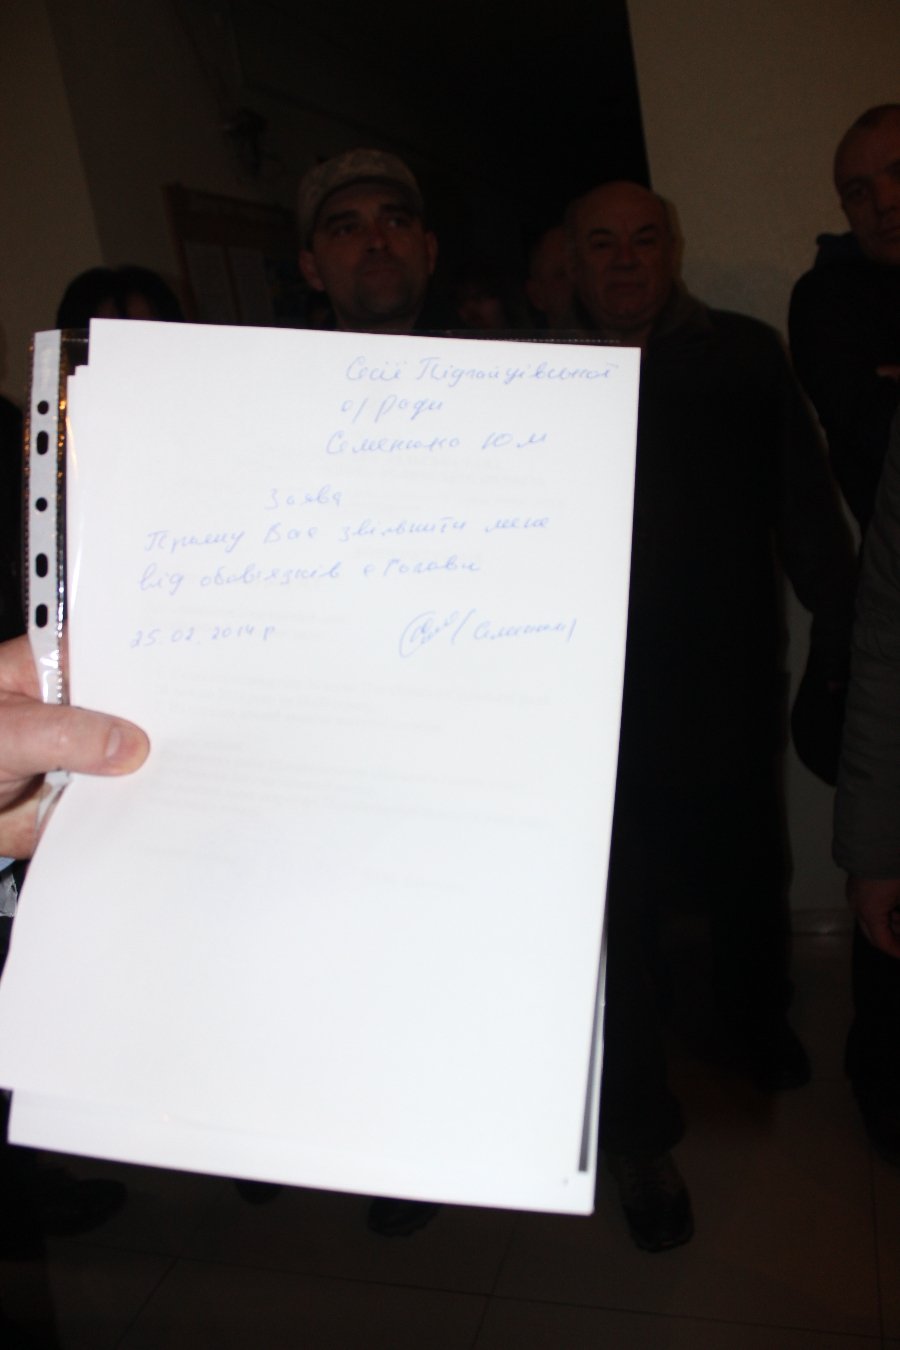 Сесії Підгайцівської
с/ради
Семенюка Ю М
Заява
Прошу Вас звільнити мене
від обов'язків с Голови
25.02.2014 р (Семенюк)